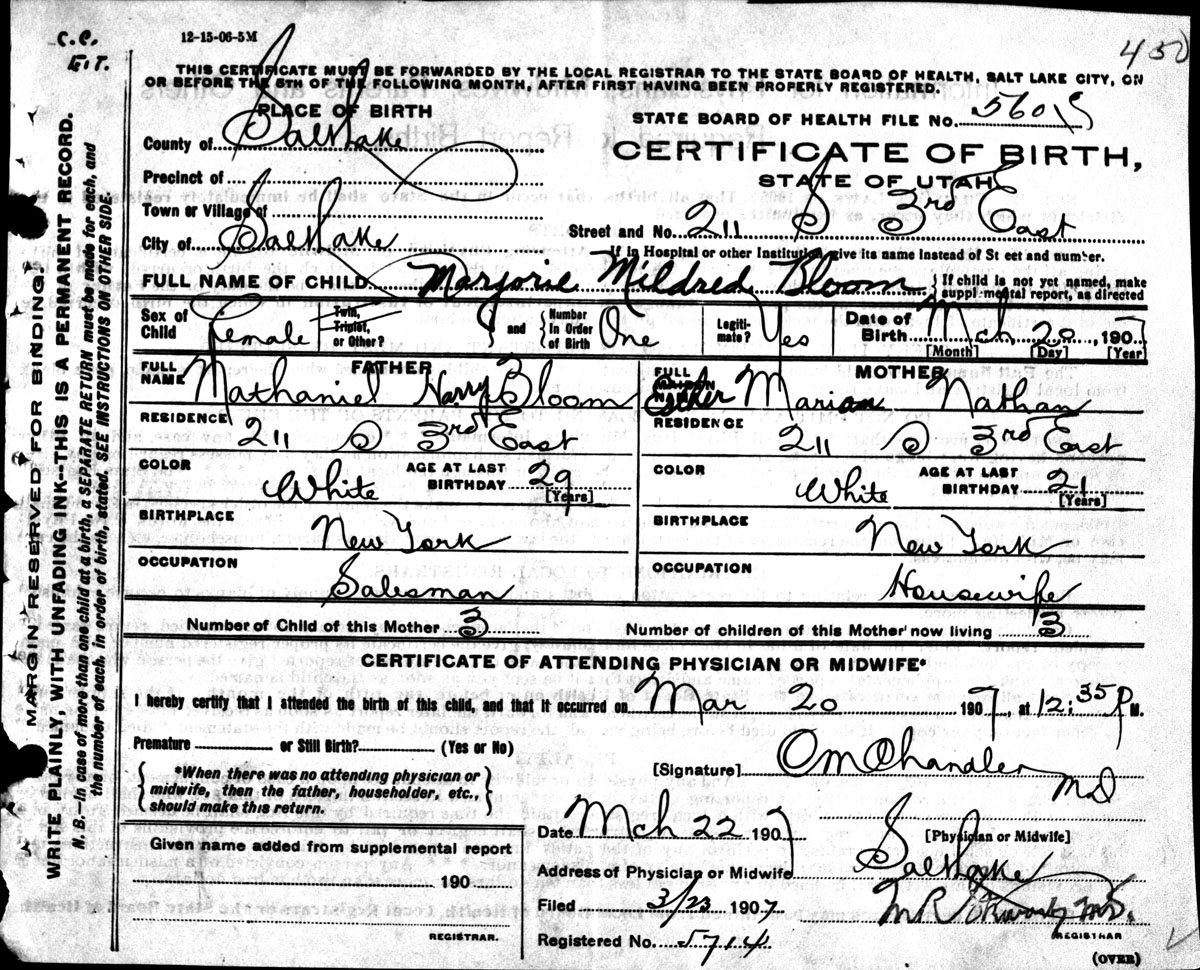 C.C.
E.T.
12-15-06-5M
450
THIS CERTIFICATE MUST BE FORWARDED BY THE LOCAL REGISTRAR TO THE STATE BOARD OF HEALTH, SALT LAKE CITY, ON
OR BEFORE THE 5TH OF THE FOLLOWING MONTH, AFTER FIRST HAVING BEEN PROPERLY REGISTERED.
PLACE OF BIRTH
STATE BOARD OF HEALTH FILE NO.
County of Salt Lake
CERTIFICATE OF BIRTH,
Precinct of
STATE OF UTAH
Town or Village of
Street and No. 211 S 3rd East
City of Salt Lake
If in Hospital or other Institution, give its name instead of St eet and number.
FULL NAME OF CHILD Marjorie Mildred Bloom } If child is not yet named, make
suppl mental report, as directed
Sex of Child Female Twin, Triplet, or Other? and { Number in Order of Birth One Legiti-mate? Yes Date of Birth Mch 20, 1907
[Month] [Day] [Year]
FATHER
FULL NAME Nathaniel Harry Bloom
RESIDENCE 211 S 3rd East
COLOR White AGE AT LAST BIRTHDAY 29 [Years]
BIRTHPLACE New York
OCCUPATION Salesman
MOTHER
FULL MAIDEN NAME Esther Marian Nathan
RESIDENCE 211 S 3rd East
COLOR White AGE AT LAST BIRTHDAY 21 [Years]
BIRTHPLACE New York
OCCUPATION Housewife
Number of Child of this Mother 3 Number of children of this Mother now living 3
CERTIFICATE OF ATTENDING PHYSICIAN OR MIDWIFE*
I hereby certify that I attended the birth of this child, and that it occurred on Mar 20 1907, at 12:35 P M.
Premature or Still Birth? (Yes or No)
{ *When there was no attending physician or
midwife, then the father, householder, etc.,
should make this return. }
[Signature] O M Chandler MD
Date Mch 22 1907 [Physician or Midwife]
Given name added from supplemental report
190
REGISTRAR.
Address of Physician or Midwife Salt Lake
Filed 3/23 1907
REGISTRAR
Registered No. 5714
(OVER)
MARGIN RESERVED FOR BINDING.
WRITE PLAINLY, WITH UNFADING INK--THIS IS A PERMANENT RECORD.
N. B.—In case of more than one child at a birth, a SEPARATE RETURN must be made for each, and
the number of each, in order of birth, stated. SEE INSTRUCTIONS ON OTHER SIDE.